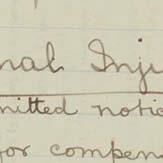 nal Inju
mitted notic
for compen